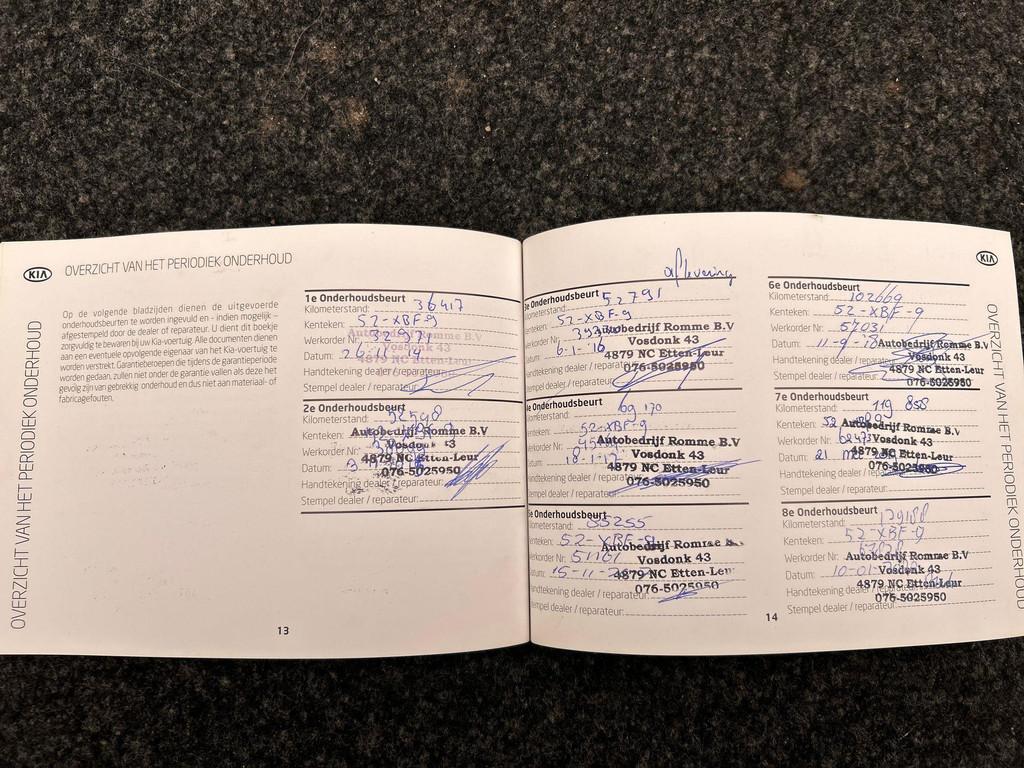 KIA
OVERZICHT VAN HET PERIODIEK ONDERHOUD
OVERZICHT VAN HET PERIODIEK ONDERHOUD
Op de volgende bladzijden dienen de uitgevoerde
onderhoudsbeurten te worden ingevuld en - indien mogelijk -
afgestempeld door de dealer of reparateur. U dient dit boekje
zorgvuldig te bewaren bij uw Kia-voertuig. Alle documenten dienen
aan een eventuele opvolgende eigenaar van het Kia-voertuig te
worden verstrekt. Garantieberoepen die tijdens de garantieperiode
worden gedaan, zullen niet onder de garantie vallen als deze het
gevolg zijn van gebrekkig onderhoud en dus niet aan materiaal- of
fabricagefouten.
1e Onderhoudsbeurt
Kilometerstand: 36417
Kenteken: 52-XBF-9
Werkorder Nr:
Datum: 26-11-14
Autobedrijf Romme B.V
Vosdonk 43
4879 NC Etten-Leur
Handtekening dealer / reparateur:
Stempel dealer / reparateur:
2e Onderhoudsbeurt
Kilometerstand:
Kenteken:
Werkorder Nr:
Datum:
Autobedrijf Romme B.V
Vosdonk 43
4879 NC Etten-Leur
076-5025950
Handtekening dealer / reparateur:
Stempel dealer / reparateur:
13
aflevering
3e Onderhoudsbeurt
Kilometerstand: 52791
Kenteken: 52-XBF-9
Werkorder Nr:
Datum: 6-1-'16
Autobedrijf Romme B.V
Vosdonk 43
4879 NC Etten-Leur
076-5025950
Handtekening dealer / reparateur:
Stempel dealer / reparateur:
4e Onderhoudsbeurt
Kilometerstand: 69170
Kenteken: 52-XBF-9
Werkorder Nr:
Datum: 18-1-17
Autobedrijf Romme B.V
Vosdonk 43
4879 NC Etten-Leur
076-5025950
Handtekening dealer / reparateur:
Stempel dealer / reparateur:
5e Onderhoudsbeurt
Kilometerstand: 85255
Kenteken: 52-XBF-9
Werkorder Nr: 51161
Datum: 15-11-
Autobedrijf Romme B.V
Vosdonk 43
4879 NC Etten-Leur
076-5025950
Handtekening dealer / reparateur:
Stempel dealer / reparateur:
14
KIA
OVERZICHT VAN HET PERIODIEK ONDERHOUD
6e Onderhoudsbeurt
Kilometerstand: 102669
Kenteken: 52-XBF-9
Werkorder Nr: 57031
Datum: 11-9-18
Autobedrijf Romme B.V
Vosdonk 43
4879 NC Etten-Leur
076-5025950
Handtekening dealer / reparateur:
Stempel dealer / reparateur:
7e Onderhoudsbeurt
Kilometerstand: 119 858
Kenteken: 52
Werkorder Nr: 62473
Datum: 21
Autobedrijf Romme B.V
Vosdonk 43
4879 NC Etten-Leur
076-5025950
Handtekening dealer / reparateur:
Stempel dealer / reparateur:
8e Onderhoudsbeurt
Kilometerstand: 129188
Kenteken: 52-XBF-9
Werkorder Nr:
Datum: 10-01-
Autobedrijf Romme B.V
Vosdonk 43
4879 NC Etten-Leur
076-5025950
Handtekening dealer / reparateur:
Stempel dealer / reparateur: